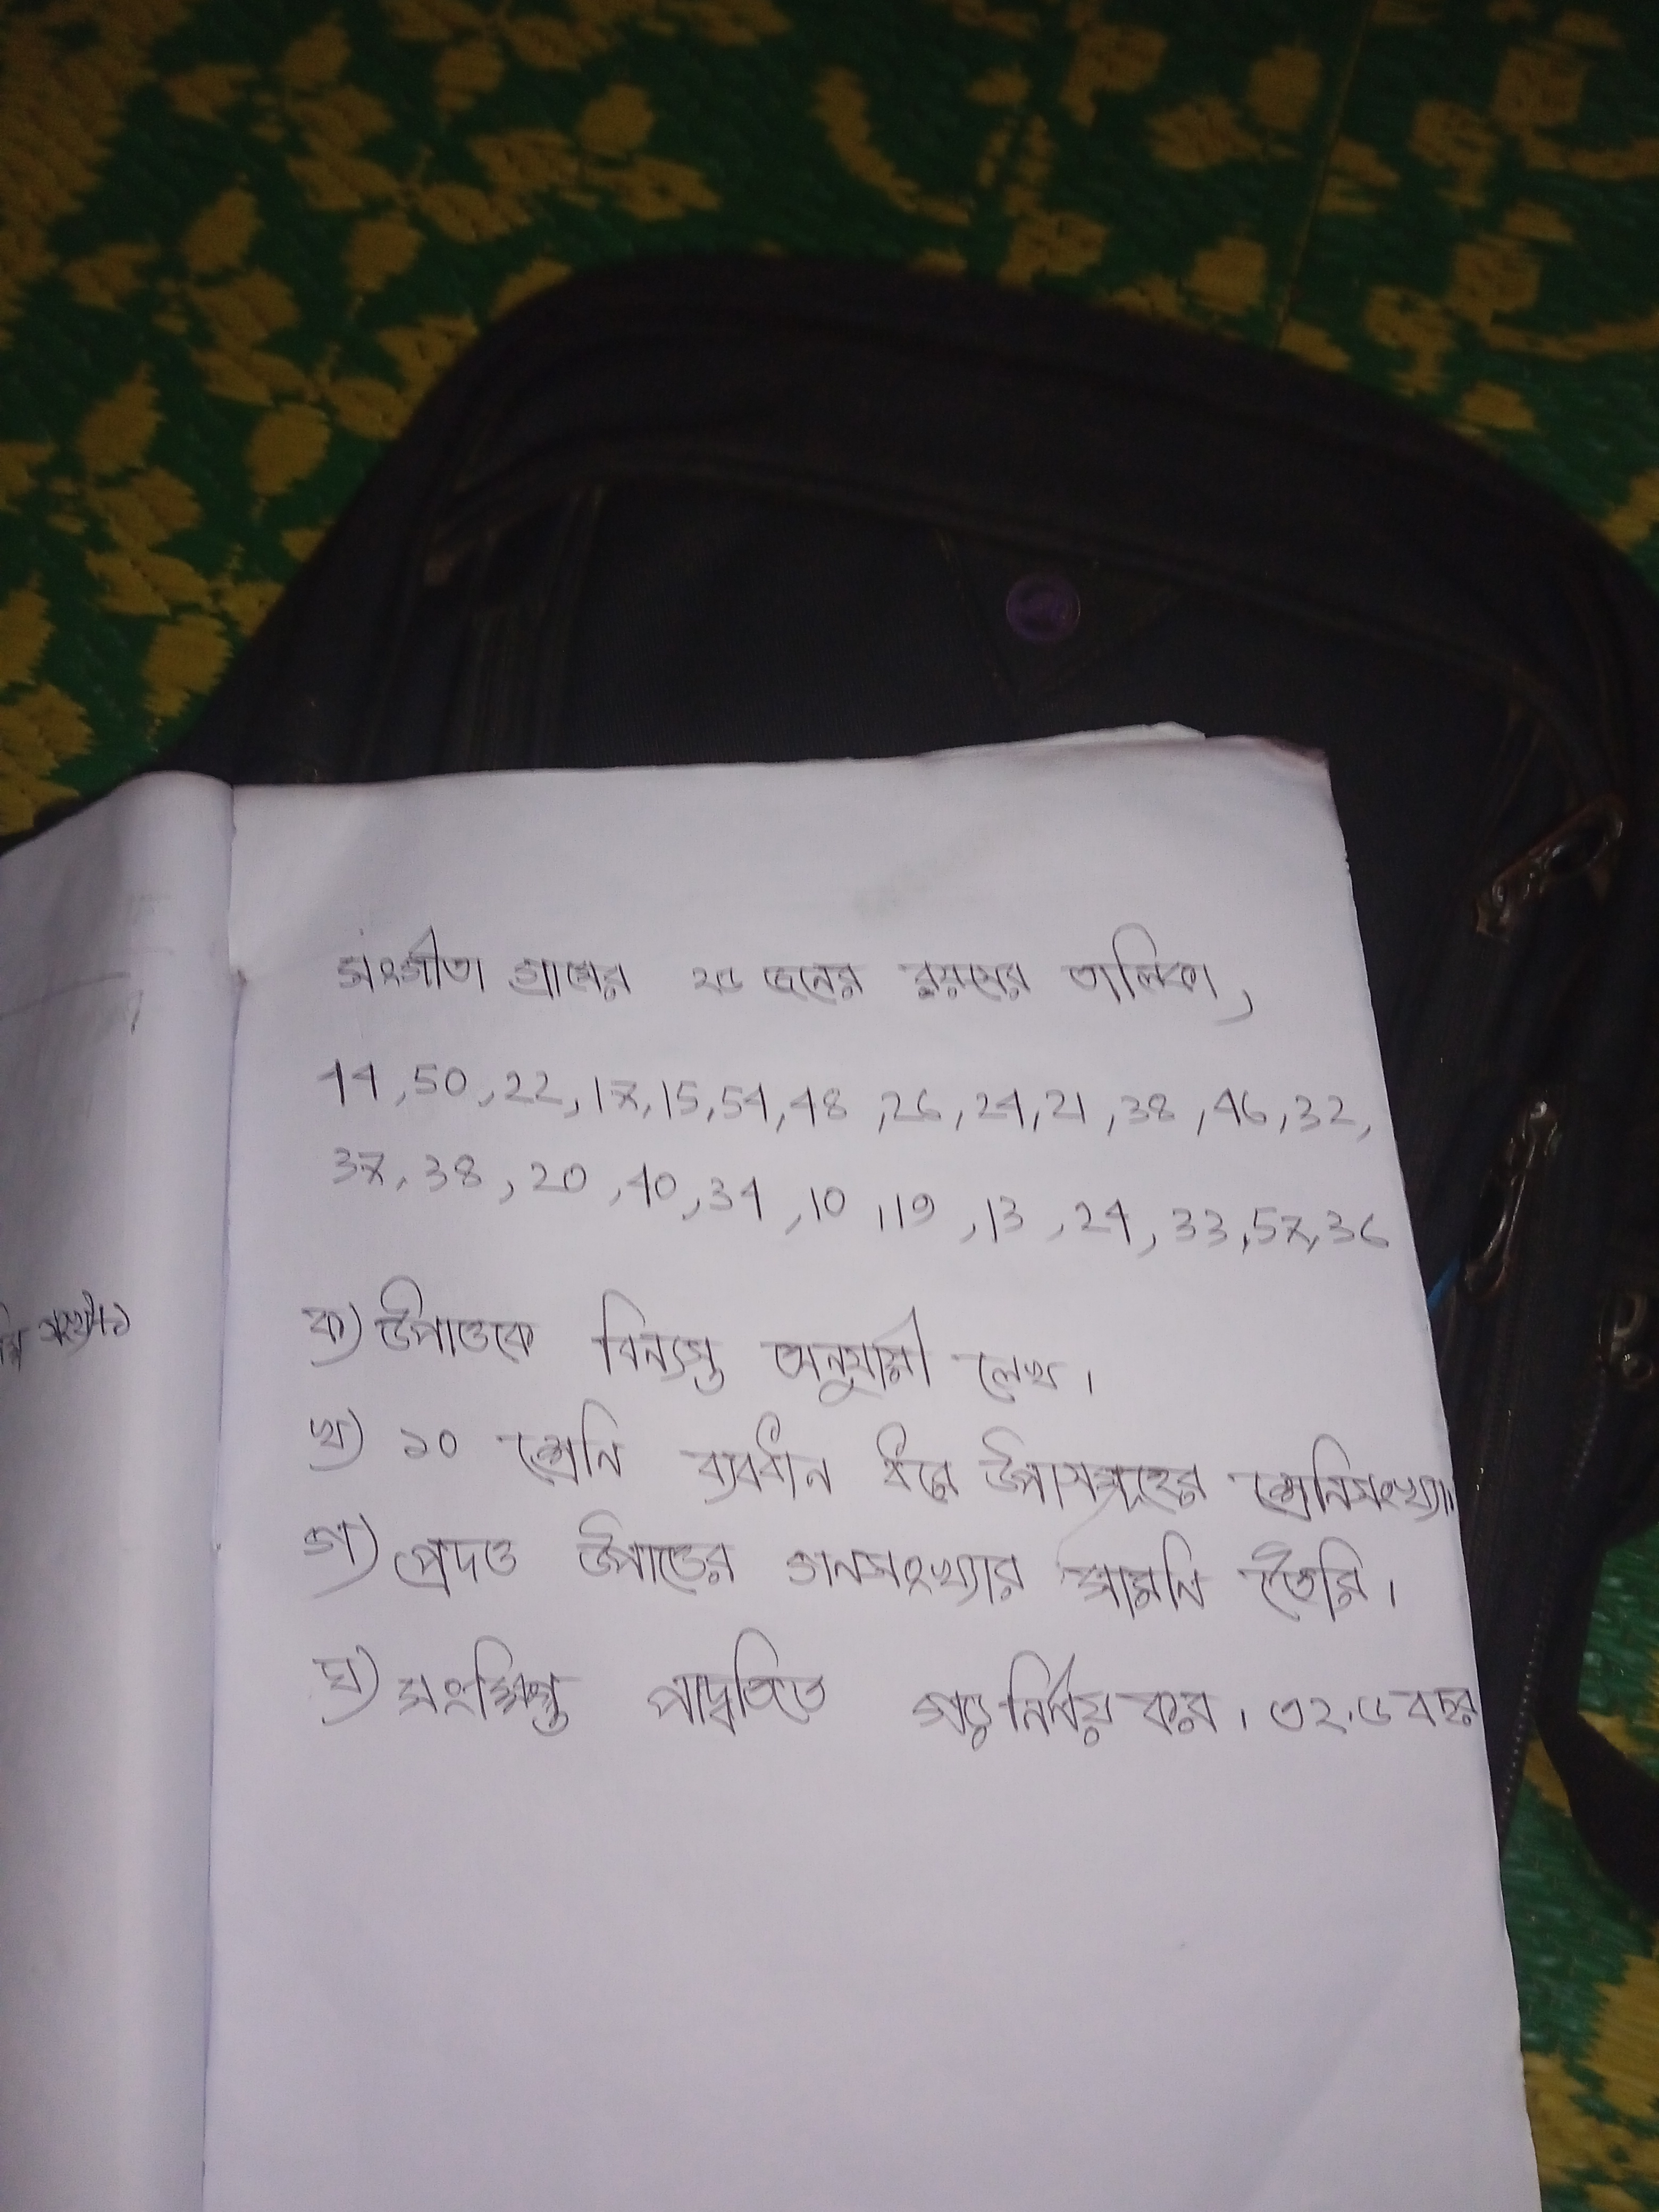 সংগীতা গ্রামের ২৫ জনের বয়সের তালিকা,
44, 50, 22, 17, 15, 54, 48, 26, 24, 21, 38, 46, 32,
37, 38, 20, 40, 34, 10, 19, 13, 24, 33, 57, 36
ক) উপাত্তকে বিন্যস্ত অনুযায়ী লেখ।
খ) ১০ শ্রেনি ব্যবধান ধরে শ্রেনিসংখ্যা।
গ) প্রদত্ত উপাত্তের গনসংখ্যার সারনি তৈরি।
ঘ) সংক্ষিপ্ত পদ্ধতিতে গড় নির্ণয় কর। ৩২.৬ বছর